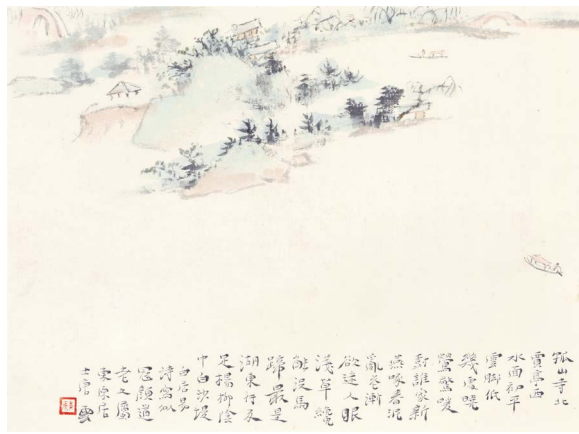 孤山寺北
賈亭西
水面初平
雲脚低
幾處曉
鶯爭暖
樹誰家新
燕啄春泥
亂花漸
欲迷人眼
淺草纔
能沒馬
蹄最是
湖東行不
足楊柳陰
中白沙堤
白居易
詩寫似
道
老
東原居
士唐雲